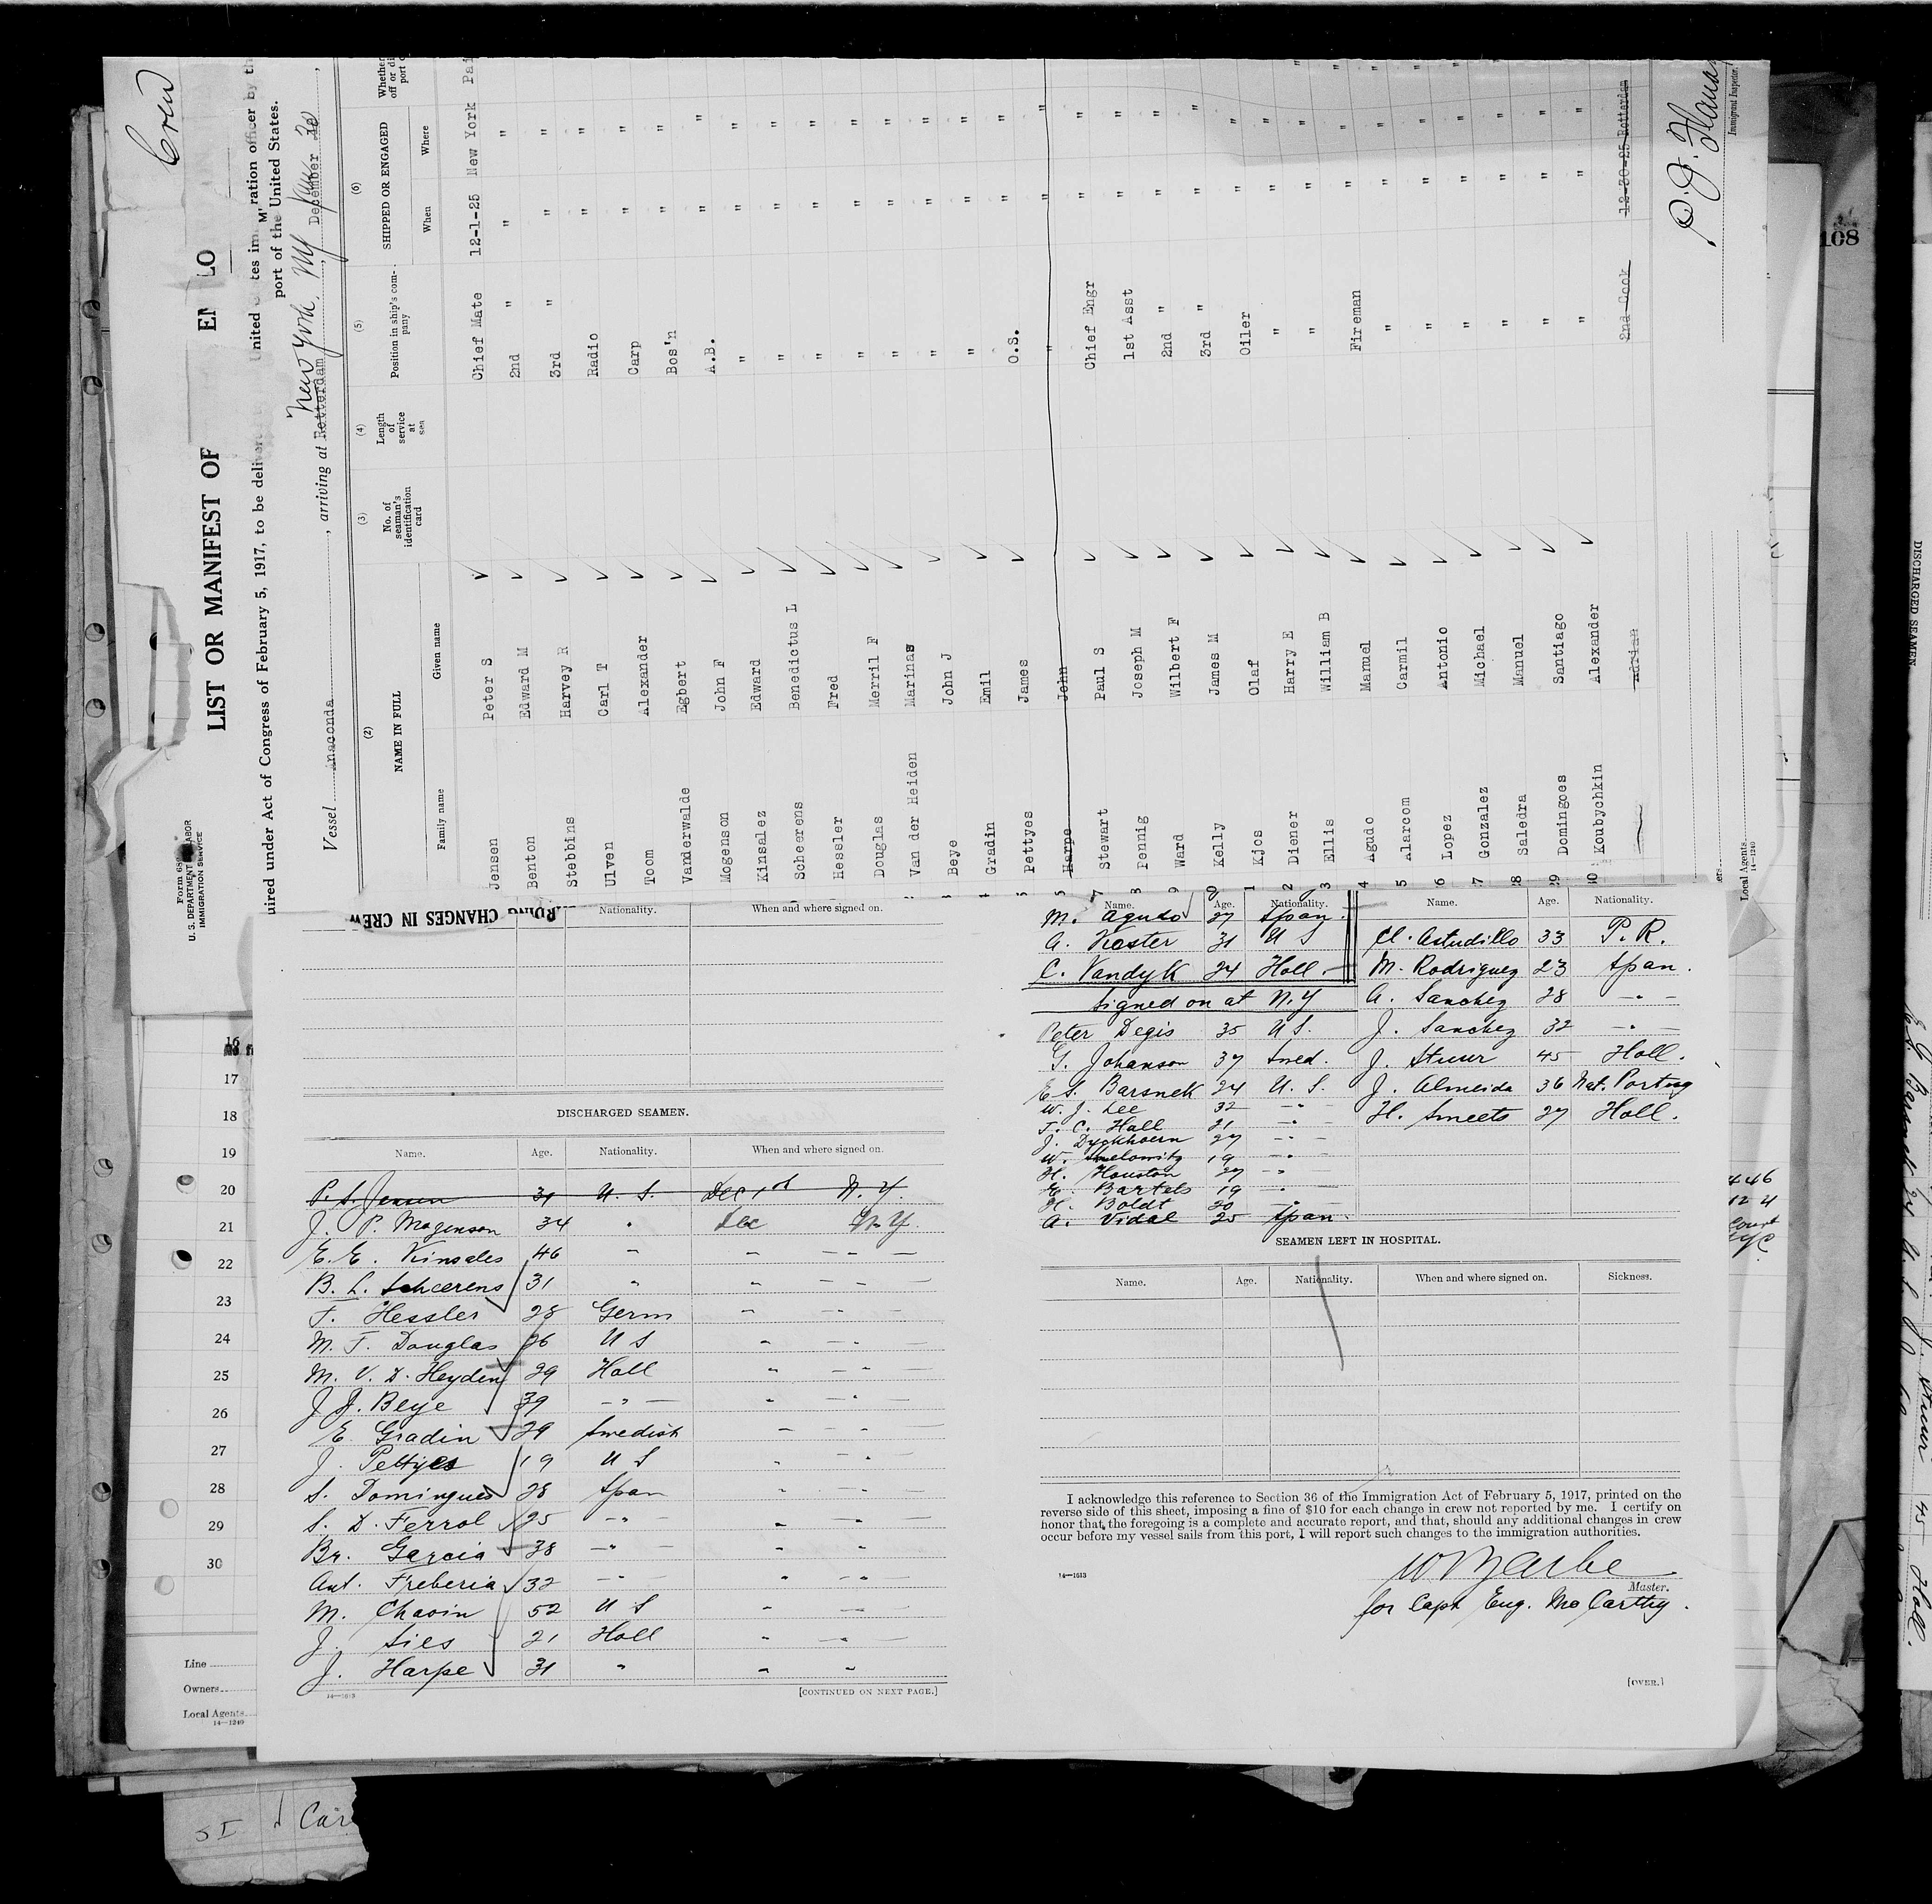 Crew
Form 689
U. S. DEPARTMENT LABOR
IMMIGRATION SERVICE
LIST OR MANIFEST OF
uired under Act of Congress of February 5, 1917, to be deliver
ration officer by th
port of the United States.
Vessel Anaconda, arriving at Rotterdam New York, NY, December
(2) (3) (4) (5) (6)
NAME IN FULL
No. of seaman's identification card
Length of service at sea
Position in ship's company
SHIPPED OR ENGAGED
Family name Given name When Where
Jensen Peter S Chief Mate 12-1-25 New York
Benton Edward M 2nd " " "
Stebbins Harvey R 3rd " " "
Ulven Carl T Radio " "
Toom Alexander Carp " "
Vanderwalde Egbert Bos'n " "
Mogenson John F A.B. " "
Kinsalez Edward " " "
Scheerens Benedictus L " " "
Hessler Fred " " "
Douglas Merril F " " "
Van der Heiden Marinas " " "
Beye John J " " "
Gradin Emil " " "
Pettyes James O.S. " "
Harpe John " " "
7 Stewart Paul S Chief Engr " "
8 Pennig Joseph M 1st Asst " "
9 Ward Wilbert F 2nd " " "
0 Kelly James M 3rd " " "
1 Kjos Olaf Oiler " "
2 Diener Harry E " " "
3 Ellis William B " " "
4 Agudo Manuel Fireman " "
5 Alarcom Carmil " " "
6 Lopez Antonio " " "
7 Gonzalez Michael " " "
8 Saledra Manuel " " "
29 Domingoes Santiago " " "
30 Koubychkin Alexander " " "
Adrian 2nd Cook 12-30-25 Rotterdam
P. J.
Immigrant Inspector.
Local Agents
14—1240
108
RDING CHANGES IN CREW
Nationality. When and where signed on.
DISCHARGED SEAMEN.
Name. Age. Nationality. When and where signed on.
P. S. Jensen 31 U. S. Dec 1st N. Y.
J. P. Mogenson 34 " Dec N. Y.
E. E. Kinsales 46 " " — " —
B. L. Scheerens 31 " " — " —
F. Hessler 28 Germ " — " —
M. F. Douglas 26 U S " — " —
M. V. D. Heyden 29 Holl " — " —
J. J. Beye 39 — " — " — " —
E. Gradin 29 Swedish " — "
J. Pettyes 19 U S " "
S. Domingues 28 Span " — " —
S. D. Ferrol 25 — " — " — " —
Br. Garcia 38 — " — " "
Ant. Freberia 32 — " — " — " —
M. Chavin 52 U S " — " —
J. Sies 21 Holl " — " —
J. Harpe 31 " " "
14—1613
[CONTINUED ON NEXT PAGE.]
Name. Age. Nationality. Name. Age. Nationality.
M. Agudo 27 Span.
A. Koster 31 U S
C. Vandyk 24 Holl.
Signed on at N.Y
Peter Degis 35 U S.
G. Johanson 37 Swed.
E S. Barsnek 24 U. S.
W. J. Lee 32 — " —
T. C. Hall 21 — " —
J. Dyckhoern 27 — " —
W. 19 — " —
H. Houston 27 — "
E. Bartels 19 — " —
H. Boldt 20 — " —
A. Vidal 25 Span.
Cl. Astudillo 33 P. R.
M. Rodriguez 23 Span.
A. Sanchez 28 — " —
J. Sanchez 32 — " —
J. Stuur 45 Holl.
J. Almeida 36 Nat. Portug
H. Smeets 27 Holl.
SEAMEN LEFT IN HOSPITAL.
Name. Age. Nationality. When and where signed on. Sickness.
I acknowledge this reference to Section 36 of the Immigration Act of February 5, 1917, printed on the
reverse side of this sheet, imposing a fine of $10 for each change in crew not reported by me. I certify on
honor that the foregoing is a complete and accurate report, and that, should any additional changes in crew
occur before my vessel sails from this port, I will report such changes to the immigration authorities.
14—1613
Master.
for Capt Eug. McCarthy.
[OVER.]
16
17
18
19
20
21
22
23
24
25
26
27
28
29
30
Line
Owners
Local Agents
14—1240
446
Court
NYC
DISCHARGED SEAMEN
S I
Car